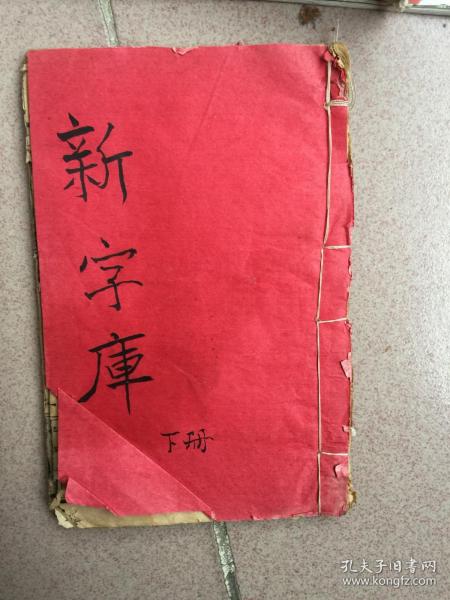 新字庫
下册
孔夫子旧书网
www.kongfz.com